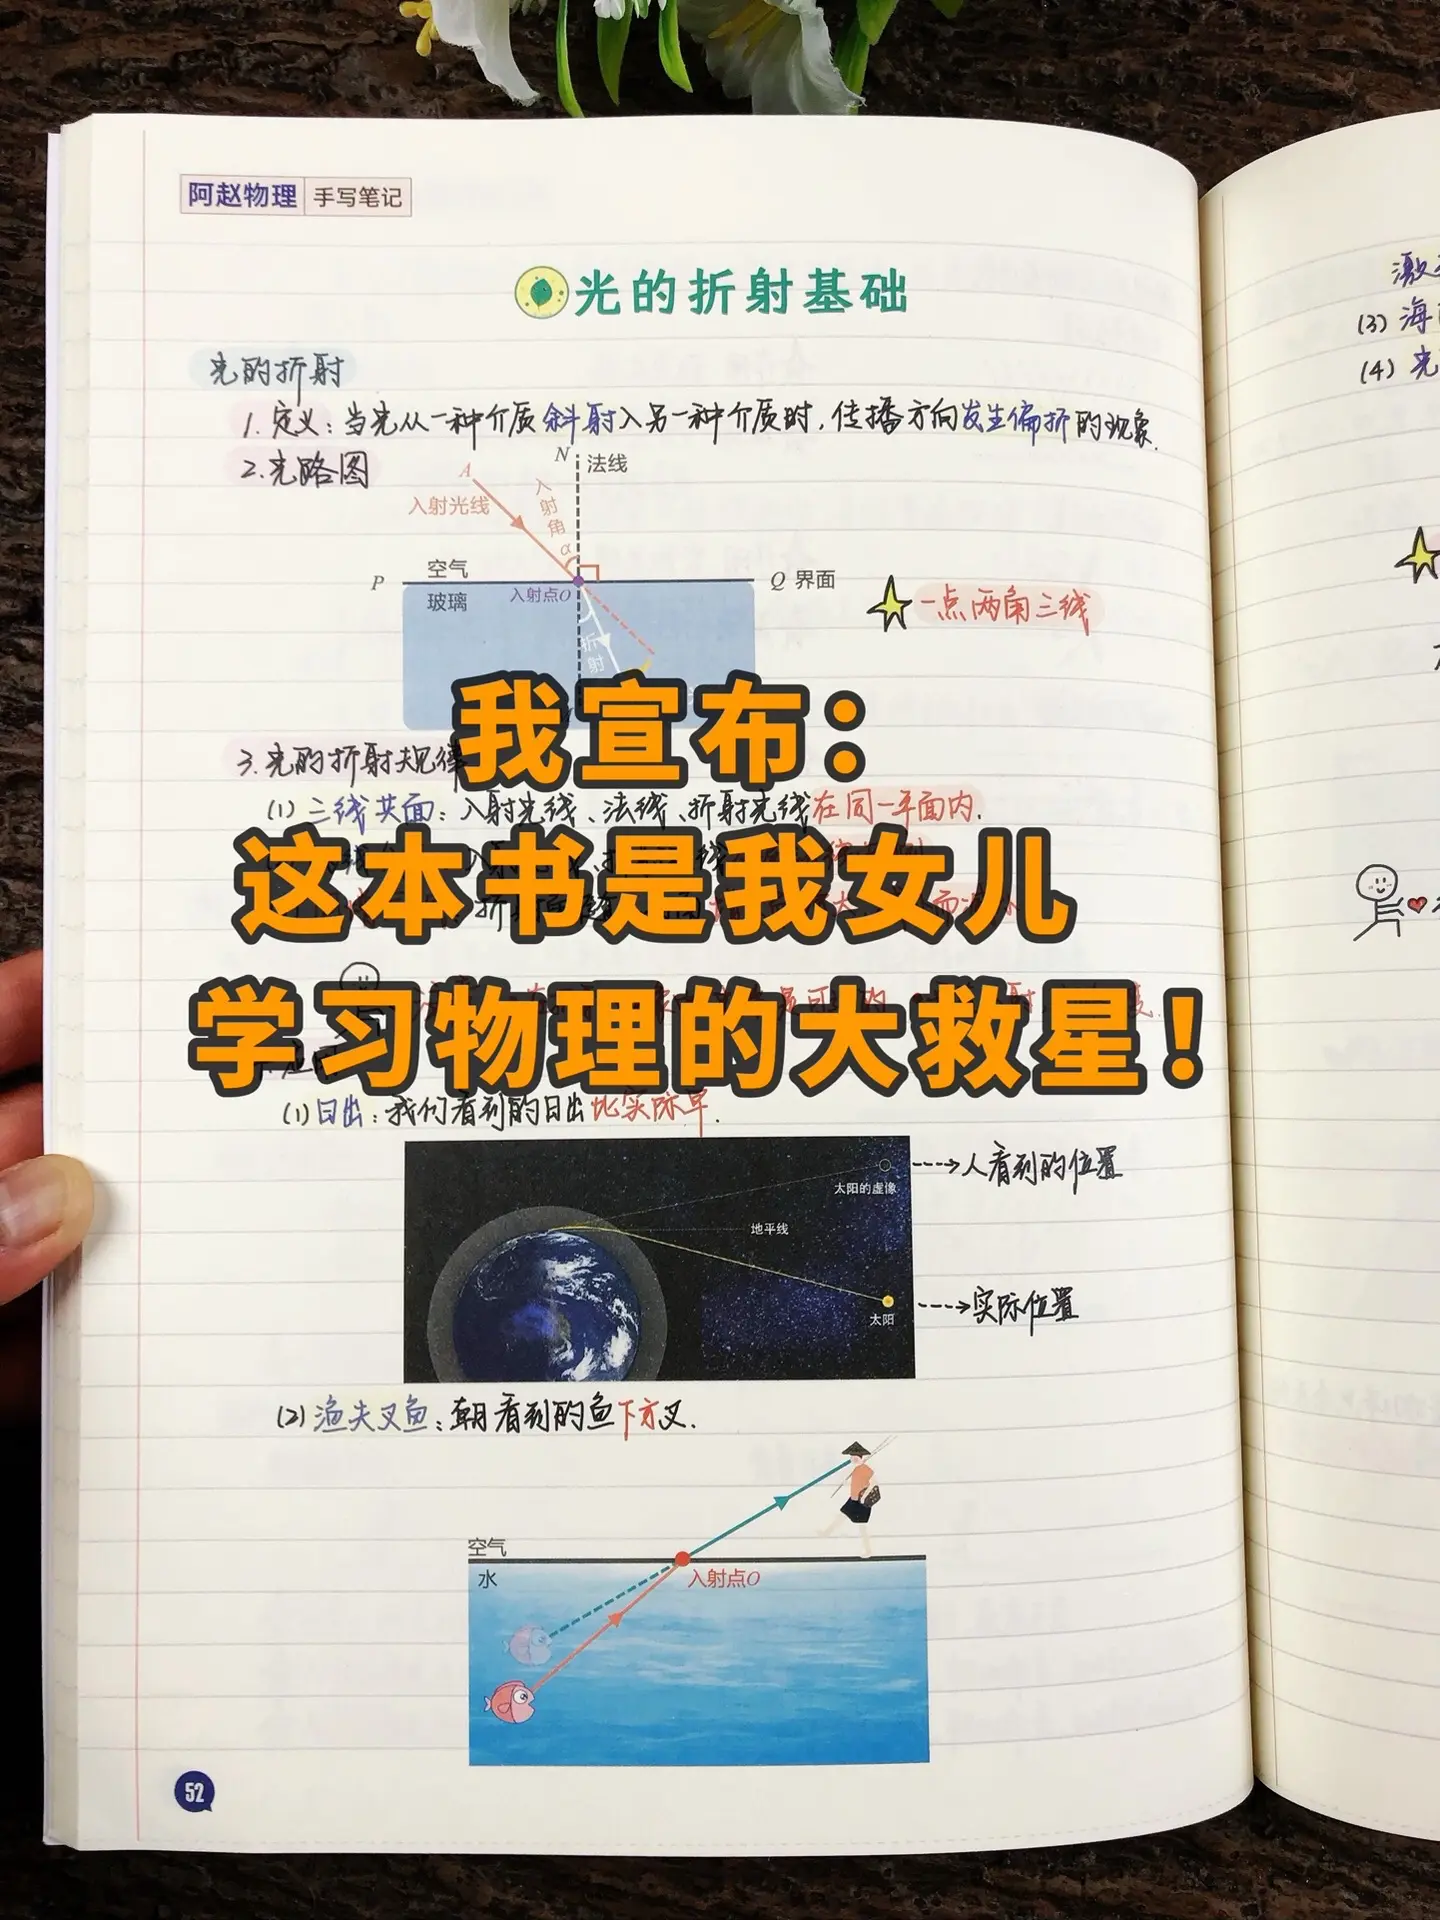 阿赵物理 手写笔记
光的折射基础
光的折射
1. 定义：当光从一种介质斜射入另一种介质时，传播方向发生偏折的现象.
2. 光路图
N 法线
A
入射光线
入射角
α
空气
P
Q 界面
玻璃
入射点O
折射
一点两角三线
我宣布：
3. 光的折射规律
(1) 三线共面：入射光线、法线、折射光线在同一平面内.
这本书是我女儿
学习物理的大救星！
(1) 日出：我们看到的日出比实际早.
人看到的位置
太阳的虚像
地平线
实际位置
太阳
(2) 渔夫叉鱼：朝看到的鱼下方叉.
空气
水
入射点O
52
(3) 海
(4) 光